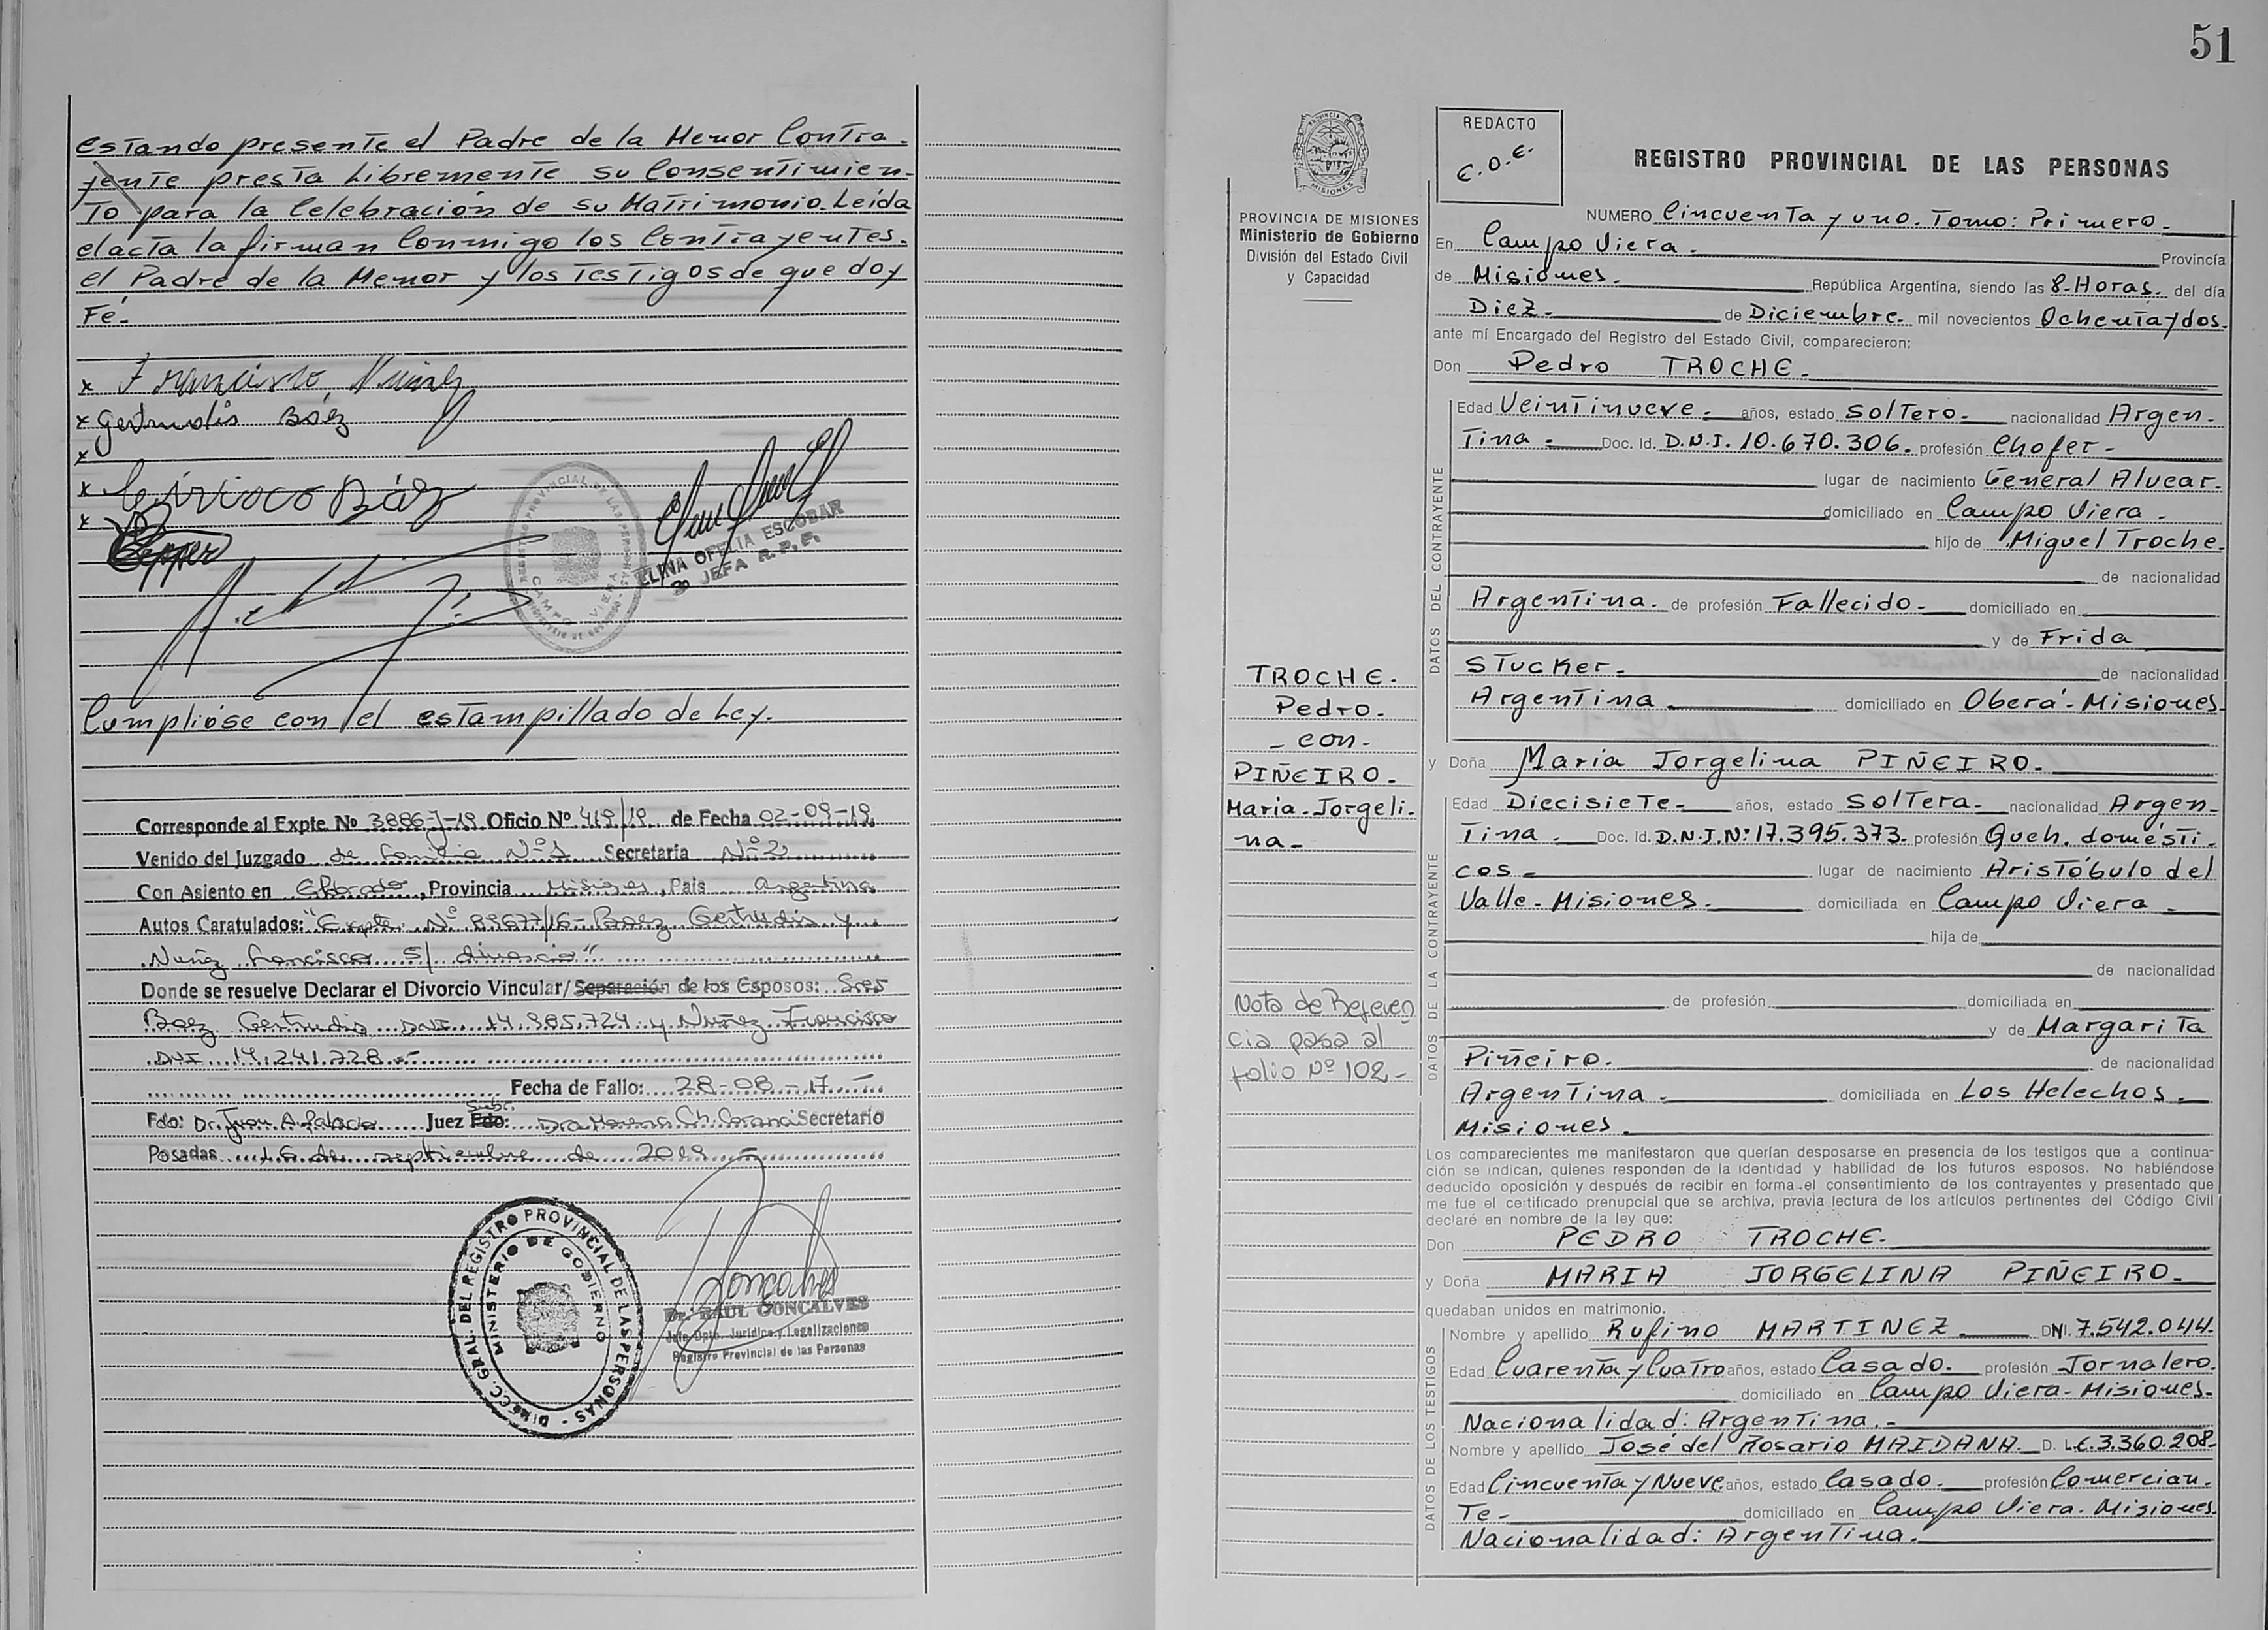 estando presente el Padre de la Menor Contra-
yente presta libremente su Consentimien-
to para la Celebración de su Matrimonio. Leída
el acta la firman Conmigo los Contrayentes.
el Padre de la Menor y los Testigos de que doy
Fé.-
x Francisco Nuñez
x Gertrudis Báez
x
x Ciriaco Báez
x
REGISTRO PROVINCIAL DE LAS PERSONAS
CAMPO VIERA
ELINA OFELIA ESCOBAR
JEFA R.P.P.
Cumplióse con el estampillado de Ley.
Corresponde al Expte. Nº 3886-J-19 Oficio Nº 419/19 de Fecha 02-09-19
Venido del Juzgado de Familia Nº 1 Secretaria Nº 2
Con Asiento en Eldorado, Provincia Misiones, Pais Argentina
Autos Caratulados: "Expte. Nº 89677/16 - Baez Gertrudis y
Nuñez Francisco S/ divorcio"
Donde se resuelve Declarar el Divorcio Vincular/Separación de los Esposos: Sres
Baez Gertrudis DNI 14.985.724 y Nuñez Francisco
DNI 14.241.728.-
Fecha de Fallo: 28-08-17.-
Fdo: Dr. Juan A. Juez Subr. Fdo: Dra. Secretario
Posadas 16 de septiembre de 2019
DIRECC. GRAL. DEL REGISTRO PROVINCIAL DE LAS PERSONAS
MINISTERIO DE GOBIERNO
Dr. RAUL GONCALVES
Jefe Dpto. Jurídico y Legalizaciones
Registro Provincial de las Personas
51
PROVINCIA DE MISIONES
PROVINCIA DE MISIONES
Ministerio de Gobierno
División del Estado Civil
y Capacidad
TROCHE.
Pedro.
- con-
PIÑEIRO.-
Maria-Jorgeli-
na-
Nota de Referen
cia pasa al
folio Nº 102-
REDACTO
E.O.E.
REGISTRO PROVINCIAL DE LAS PERSONAS
NUMERO Cincuenta y uno. Tomo: Primero.-
En Campo Viera. Provincia
de Misiones. República Argentina, siendo las 8-Horas. del día
Diez- de Diciembre. mil novecientos Ochenta y dos.
ante mí Encargado del Registro del Estado Civil, comparecieron:
Don Pedro TROCHE.
DATOS DEL CONTRAYENTE
Edad Veintinueve- años, estado Soltero- nacionalidad Argen-
tina- Doc. Id. D.N.I. 10.670.306. profesión Chofer-
lugar de nacimiento General Alvear.
domiciliado en Campo Viera-
hijo de Miguel Troche.
de nacionalidad
Argentina. de profesión Fallecido- domiciliado en
y de Frida
Stucker- de nacionalidad
Argentina domiciliado en Oberá-Misiones.
y Doña Maria Jorgelina PIÑEIRO.
DATOS DE LA CONTRAYENTE
Edad Diecisiete- años, estado Soltera- nacionalidad Argen-
tina- Doc. Id. D.N.I.Nº:17.395.373. profesión Queh. domésti-
cos- lugar de nacimiento Aristóbulo del
Valle-Misiones. domiciliada en Campo Viera-
hija de
de nacionalidad
de profesión domiciliada en
y de Margarita
Piñeiro. de nacionalidad
Argentina- domiciliada en Los Helechos-
Misiones.
Los comparecientes me manifestaron que querían desposarse en presencia de los testigos que a continua-
ción se indican, quienes responden de la identidad y habilidad de los futuros esposos. No habiéndose
deducido oposición y después de recibir en forma el consentimiento de los contrayentes y presentado que
me fue el certificado prenupcial que se archiva, previa lectura de los artículos pertinentes del Código Civil
declaré en nombre de la ley que:
Don PEDRO TROCHE.
y Doña MARIA JORGELINA PIÑEIRO.
quedaban unidos en matrimonio.
DATOS DE LOS TESTIGOS
Nombre y apellido Rufino MARTINEZ. DNI. 7.542.044.
Edad Cuarenta y Cuatro años, estado Casado. profesión Jornalero.
domiciliado en Campo Viera-Misiones-
Nacionalidad: Argentina.-
Nombre y apellido José del Rosario MAIDANA. D. L.E.3.360.208-
Edad Cincuenta y Nueve años, estado Casado. profesión Comercian-
te- domiciliado en Campo Viera. Misiones.
Nacionalidad: Argentina.